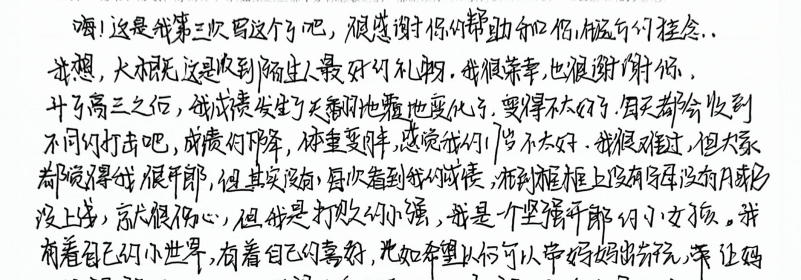 嗨！这是我第三次写这个了吧，很感谢你的帮助和你们的挂念..
我想，大概这是收到陌生人最好的礼物。我很荣幸，也很谢谢你。
升了高三之后，我成绩发生了天翻地覆地变化了。变得不太好了。每天都会收到
不同的打击吧，成绩的下降，体重变胖，感觉我的17岁不太好。我很难过，但大家
都觉得我很开郎，但其实没有，每次看到我的成绩，看到框框上没有
没上线，就很伤心，但我是打败的小强，我是一个坚强开郎的小女孩。我
有着自己的小世界，有着自己的喜好，比如希望以后可以带妈妈出去玩，让妈